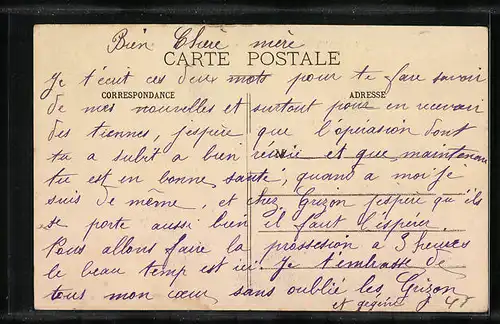 Bien Chère mère
CARTE POSTALE
Je t'écrit ces deux mots pour te fare savoir
CORRESPONDANCE ADRESSE
de mes nouvelles et surtout pour en recevoir
des tiennes, j'espère que l'opérasion dont
tu a subit a bien réusie et que maintenan
tu est en bonne santé, quand a moi je
suis de même, et chez Guzon j'espère qu'ils
se porte aussi bien il faut l'espéré.
Nous allons faire la prossesion a 3 heures
le beau temp est ici. Je t'embrasse de
tous mon cœur sans oublié les Guzon
et gégène